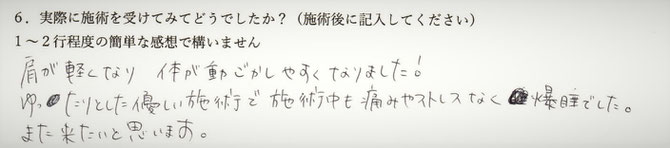 6．実際に施術を受けてみてどうでしたか？（施術後に記入してください）
1～2行程度の簡単な感想で構いません
肩が軽くなり 体が動ごかしやすくなりました！
ゆったりとした優しい施術で施術中も痛みやストレスなく爆睡でした。
また来たいと思います。